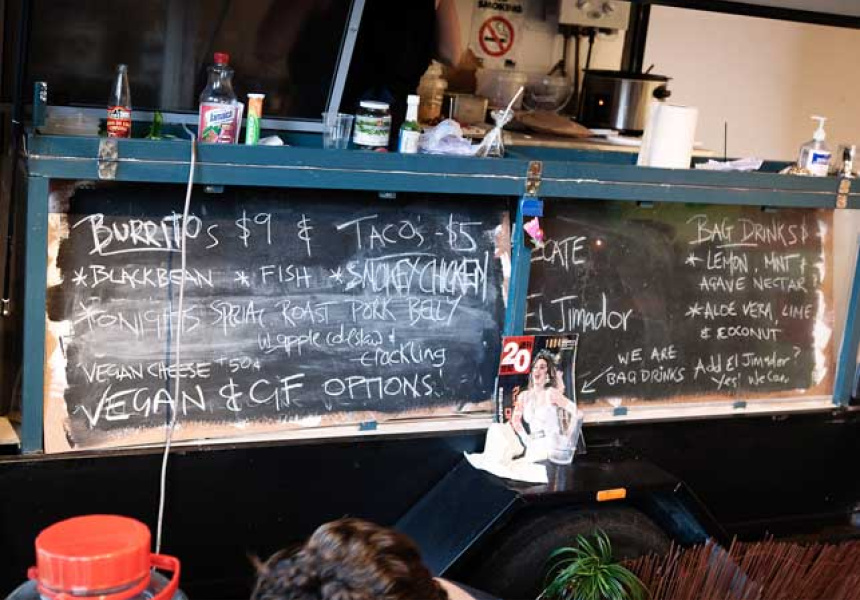 SMOKING
Jamaica
BURRITOs $9 & TACO'S -$5
*BLACKBEAN * FISH *SMOKEY CHICKEN
*TONIGHTS SPECIAL ROAST PORK BELLY
w/ apple coleslaw &
crackling
VEGAN CHEESE +50¢
VEGAN & GF OPTIONS!
ECATE
EL Jimador
WE ARE
BAG DRINKS
BAG DRINKS
* LEMON, MINT &
AGAVE NECTAR
*ALOE VERA, LIME
& COCONUT
Add El Jimador?
Yes! We Can.
20